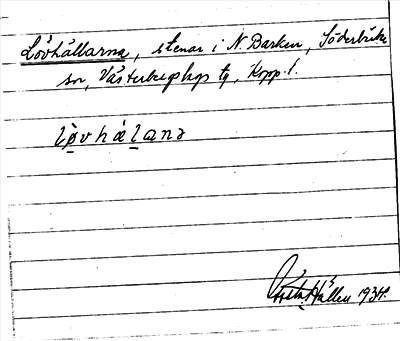 Lövhällarna, stenar i N. Barken, Söderbärke
sn, Västerbergslags tg, Kopp. l.
lø̀vhälanə
Gösta Hållen 1934.